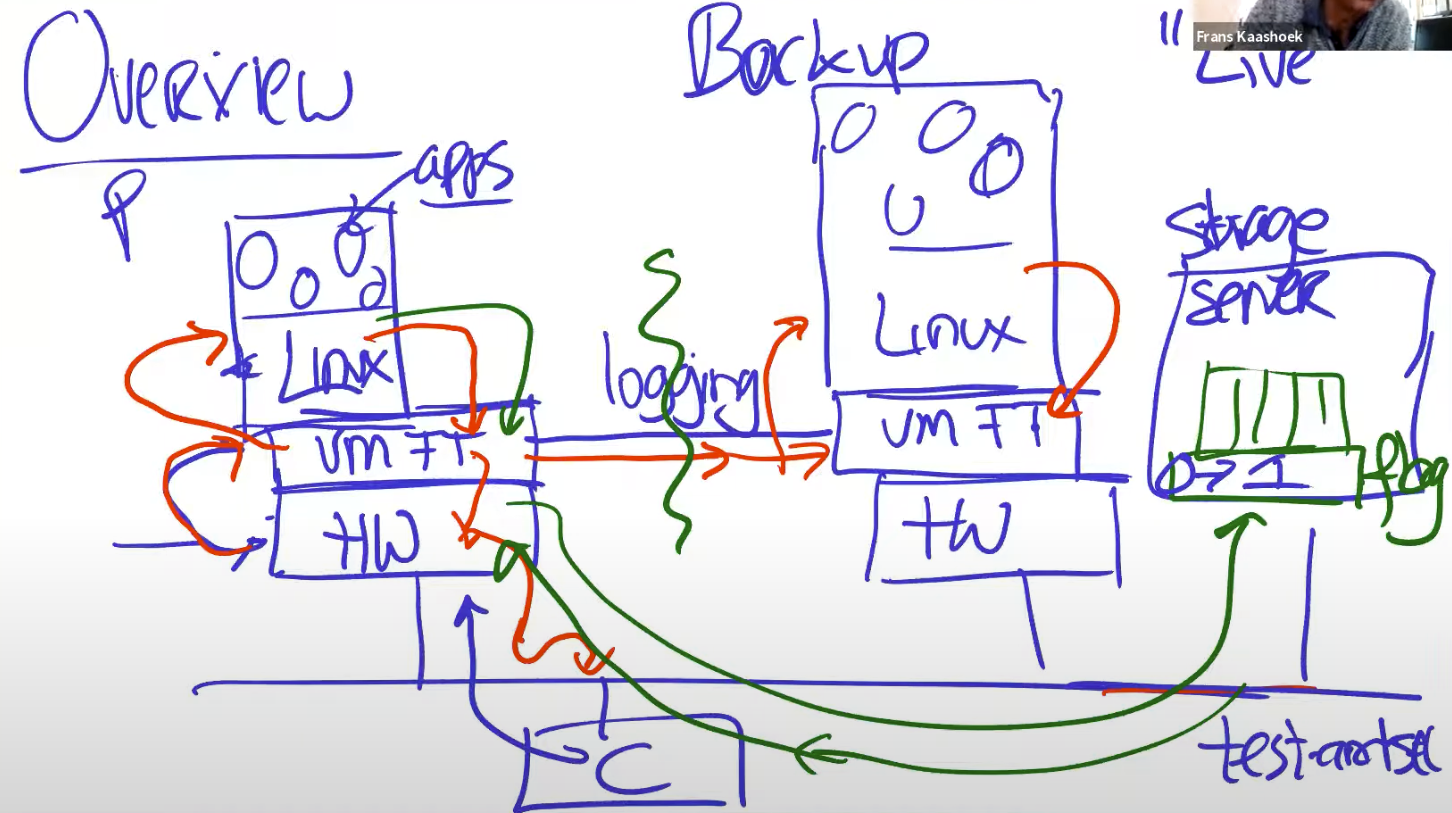 Overview
P
apps
Linux
VM FT
HW
logging
Backup
Linux
VM FT
HW
"Live
Frans Kaashoek
storage
server
0→1
flag
C
test-and-set